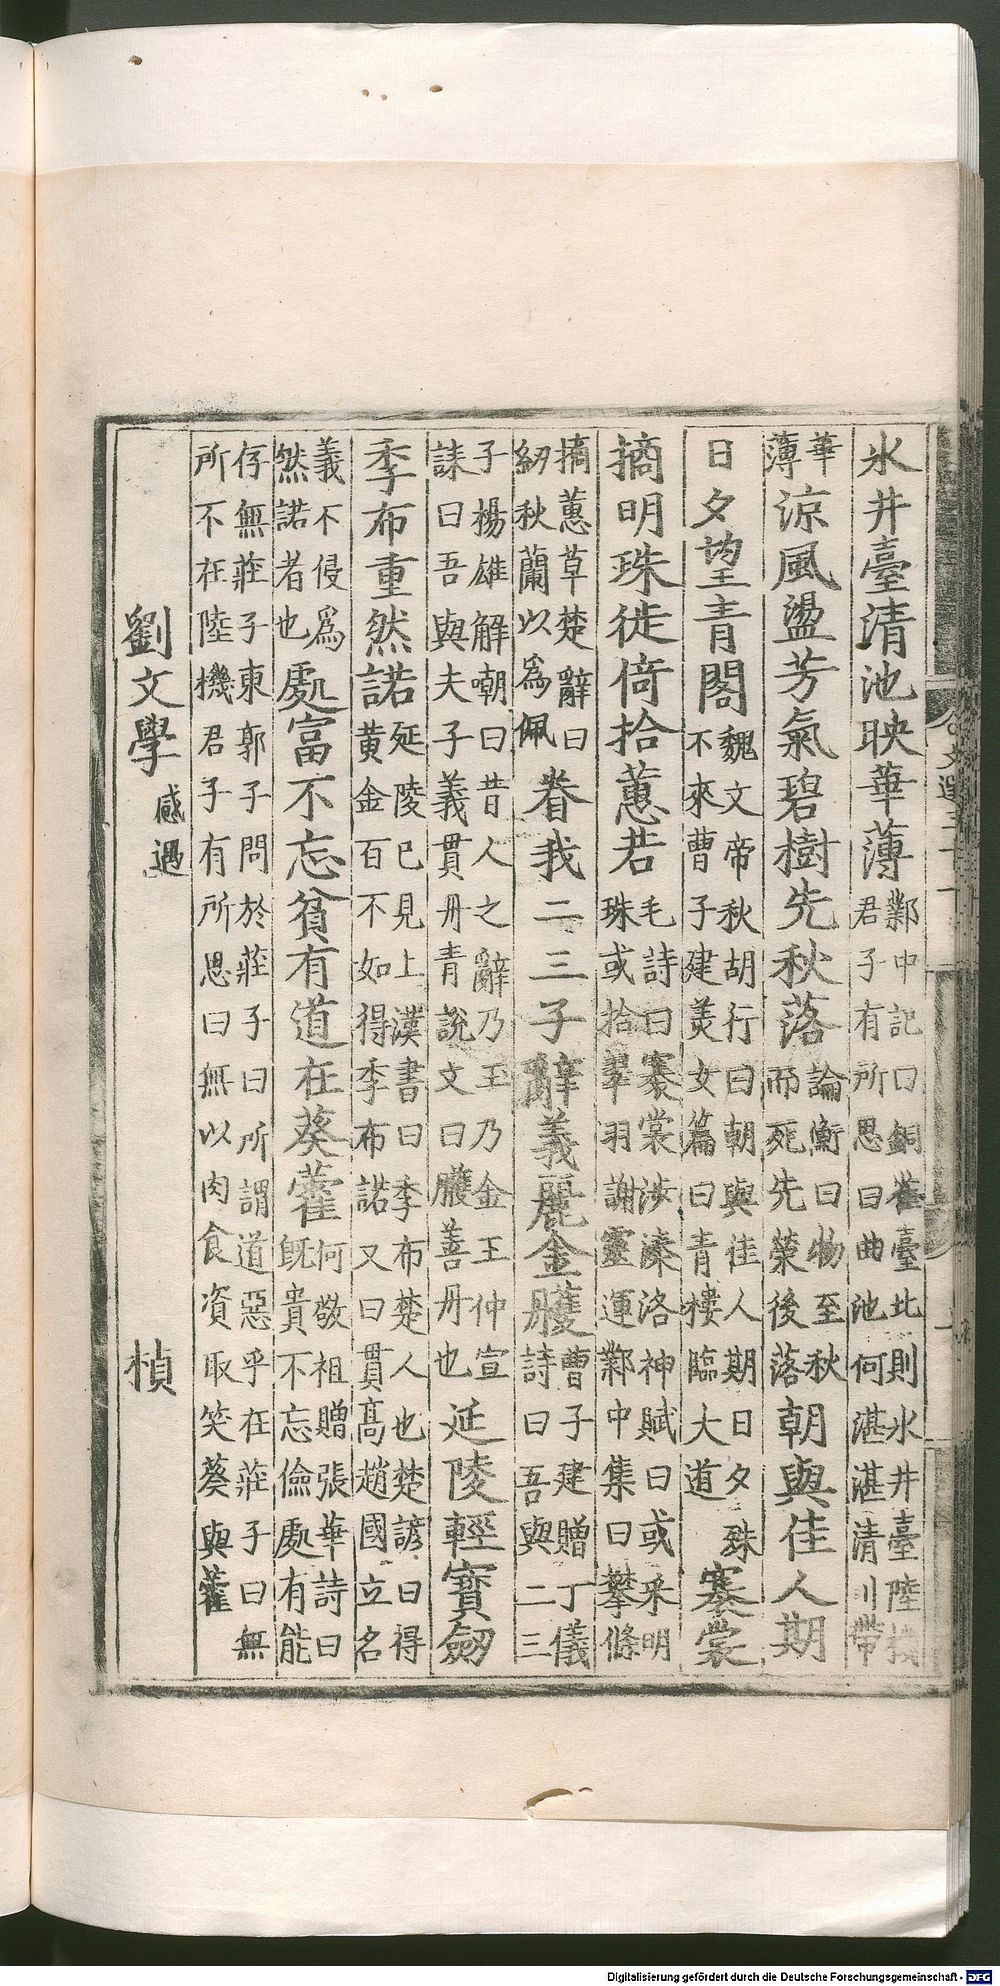 氷井臺清池映華薄鄴中記曰銅雀臺北則氷井臺陸機君子有所思曰曲池何湛湛清川帶
華薄涼風盪芳氣碧樹先秋落論衡曰物至秋而死先榮後落朝與佳人期
日夕望青閣魏文帝秋胡行曰朝與佳人期日夕殊不來曹子建美女篇曰青樓臨大道褰裳
摘明珠徙倚拾蕙若毛詩曰褰裳涉溱洛神賦曰或采明珠或拾翠羽謝靈運鄴中集曰攀條
摘蕙草楚辭曰紉秋蘭以爲佩眷我二三子辭義麗金雘曹子建贈丁儀詩曰吾與二三
子楊雄解嘲曰昔人之辭乃玉乃金王仲宣誄曰吾與夫子義貫丹青說文曰雘善丹也延陵輕寶劒
季布重然諾延陵已見上漢書曰季布楚人也楚諺曰得黃金百不如得季布諾又曰貫高趙國立名
義不侵爲然諾者也處富不忘貧有道在葵藿何敬祖贈張華詩曰旣貴不忘儉處有能
存無莊子東郭子問於莊子曰所謂道惡乎在莊子曰無所不在陸機君子有所思曰無以肉食資取笑葵與藿
劉文學感遇 楨
Digitalisierung gefördert durch die Deutsche Forschungsgemeinschaft - DFG